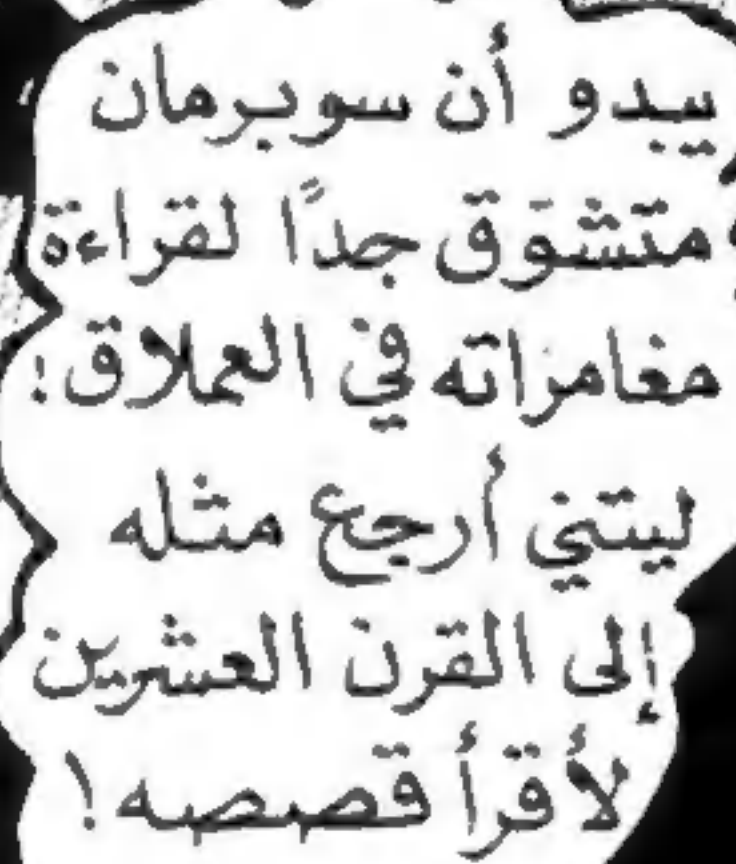 يبدو أن سوبرمان
متشوّق جدًا لقراءة
مغامراته في العملاق!
ليتني أرجع مثله
إلى القرن العشرين
لأقرأ قصصه!